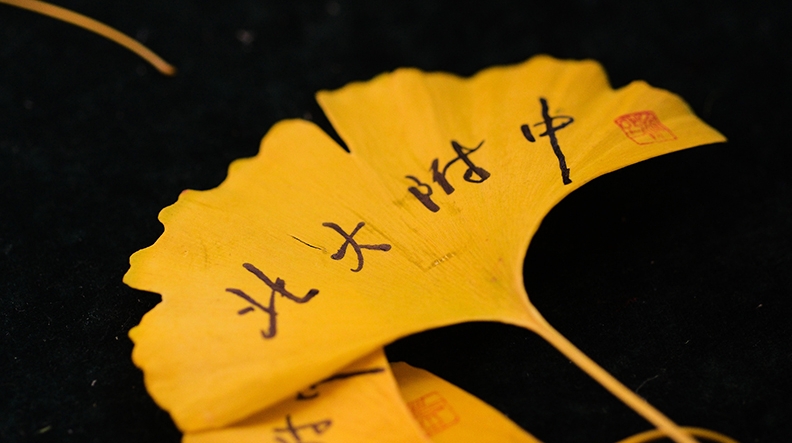 北大附中